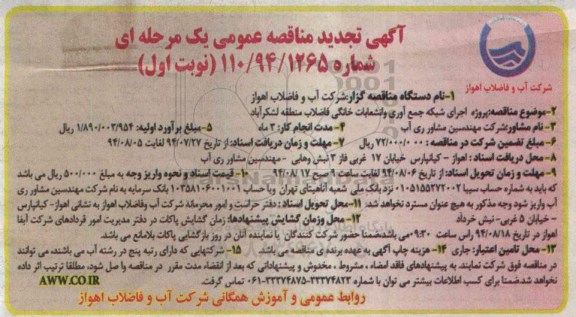 آگهی تجدید مناقصه عمومی یک مرحله ای
شماره ۱۱۰/۹۴/۱۲۶۵ (نوبت اول)
شرکت آب و فاضلاب اهواز
۱-نام دستگاه مناقصه گزار:شرکت آب و فاضلاب اهواز
۲-موضوع مناقصه:پروژه اجرای شبکه جمع آوری وانشعابات خانگی فاضلاب منطقه لشکرآباد
۳- نام مشاور:شرکت مهندسین مشاور ری آب ۴- مدت انجام کار: ۳ ماه ۵-مبلغ برآورد اولیه: ۱/۸۹۰/۰۰۳/۹۵۴ ریال
۶- مبلغ تضمین شرکت در مناقصه : ۷۲/۰۰۰/۰۰۰ ریال ۷- مهلت و زمان دریافت اسناد:از تاریخ ۹۴/۰۷/۲۷ لغایت ۹۴/۰۸/۰۵
۸- محل دریافت اسناد : اهواز - کیانپارس خیابان ۱۷ غربی فاز ۳نبش وهابی -مهندسین مشاور ری آب
۹- مهلت و زمان تحویل اسناد: از تاریخ ۹۴/۰۸/۰۶ لغایت ساعت ۹ صبح ۹۴/۰۸/۱۷ ۱۰- قیمت اسناد و نحوه واریز وجه به مبلغ ۵۰۰/۰۰۰ ریال می باشد
که باید به شماره حساب سیبا ۰۱۰۵۱۵۵۲۷۲۰۰۲ نزد بانک ملی شعبه اناهیتای تهران ویا حساب ۱۰۳۵۸۱۰۶۰۰۱۰۰۱ بانک سرمایه به نام شرکت مهندسین مشاور ری
آب واریز شود وجه مذکور به هیچ عنوان مسترد نخواهد شد. ۱۱- محل تحویل اسناد: دفتر حراست و امور محرمانه شرکت آب وفاضلاب اهواز به نشانی اهواز- کیانپارس
- خیابان ۵ غربی-نبش خرداد ۱۲- محل وزمان گشایش پیشنهادها: زمان گشایش پاکات در دفتر مدیریت امور قراردادهای شرکت آبفا
از تاریخ ۹۴/۰۸/۱۸ راس ساعت ۰۹:۳۰می باشد.ضمنا حضور شرکت کنندگان یا نماینده آنان در روز بازگشایی پاکات بلامانع می باشد.
۱۳- محل تامین اعتبار: جاری ۱۴- هزینه چاپ آگهی به عهده برنده ی مناقصه می باشد ۱۵-شرکتهایی که دارای رتبه پنج در رشته آب می باشند، می توانند
در مناقصه فوق شرکت نمایند. به پیشنهادهای فاقد امضاء ، مشروط ، مخدوش و پیشنهاداتی که بعد از انقضاء مدت مقرر در مناقصه واصل شود، مطلقا ترتیب اثر داده
نخواهد شد.ضمنا برای کسب اطلاعات بیشتر می توان با شماره ۳۳۳۷۴۸۲۳-۳۳۳۷۴۸۷۵-۰۶۱ تماس گرفت. AWW.CO.IR
روابط عمومی و آموزش همگانی شرکت آب و فاضلاب اهواز